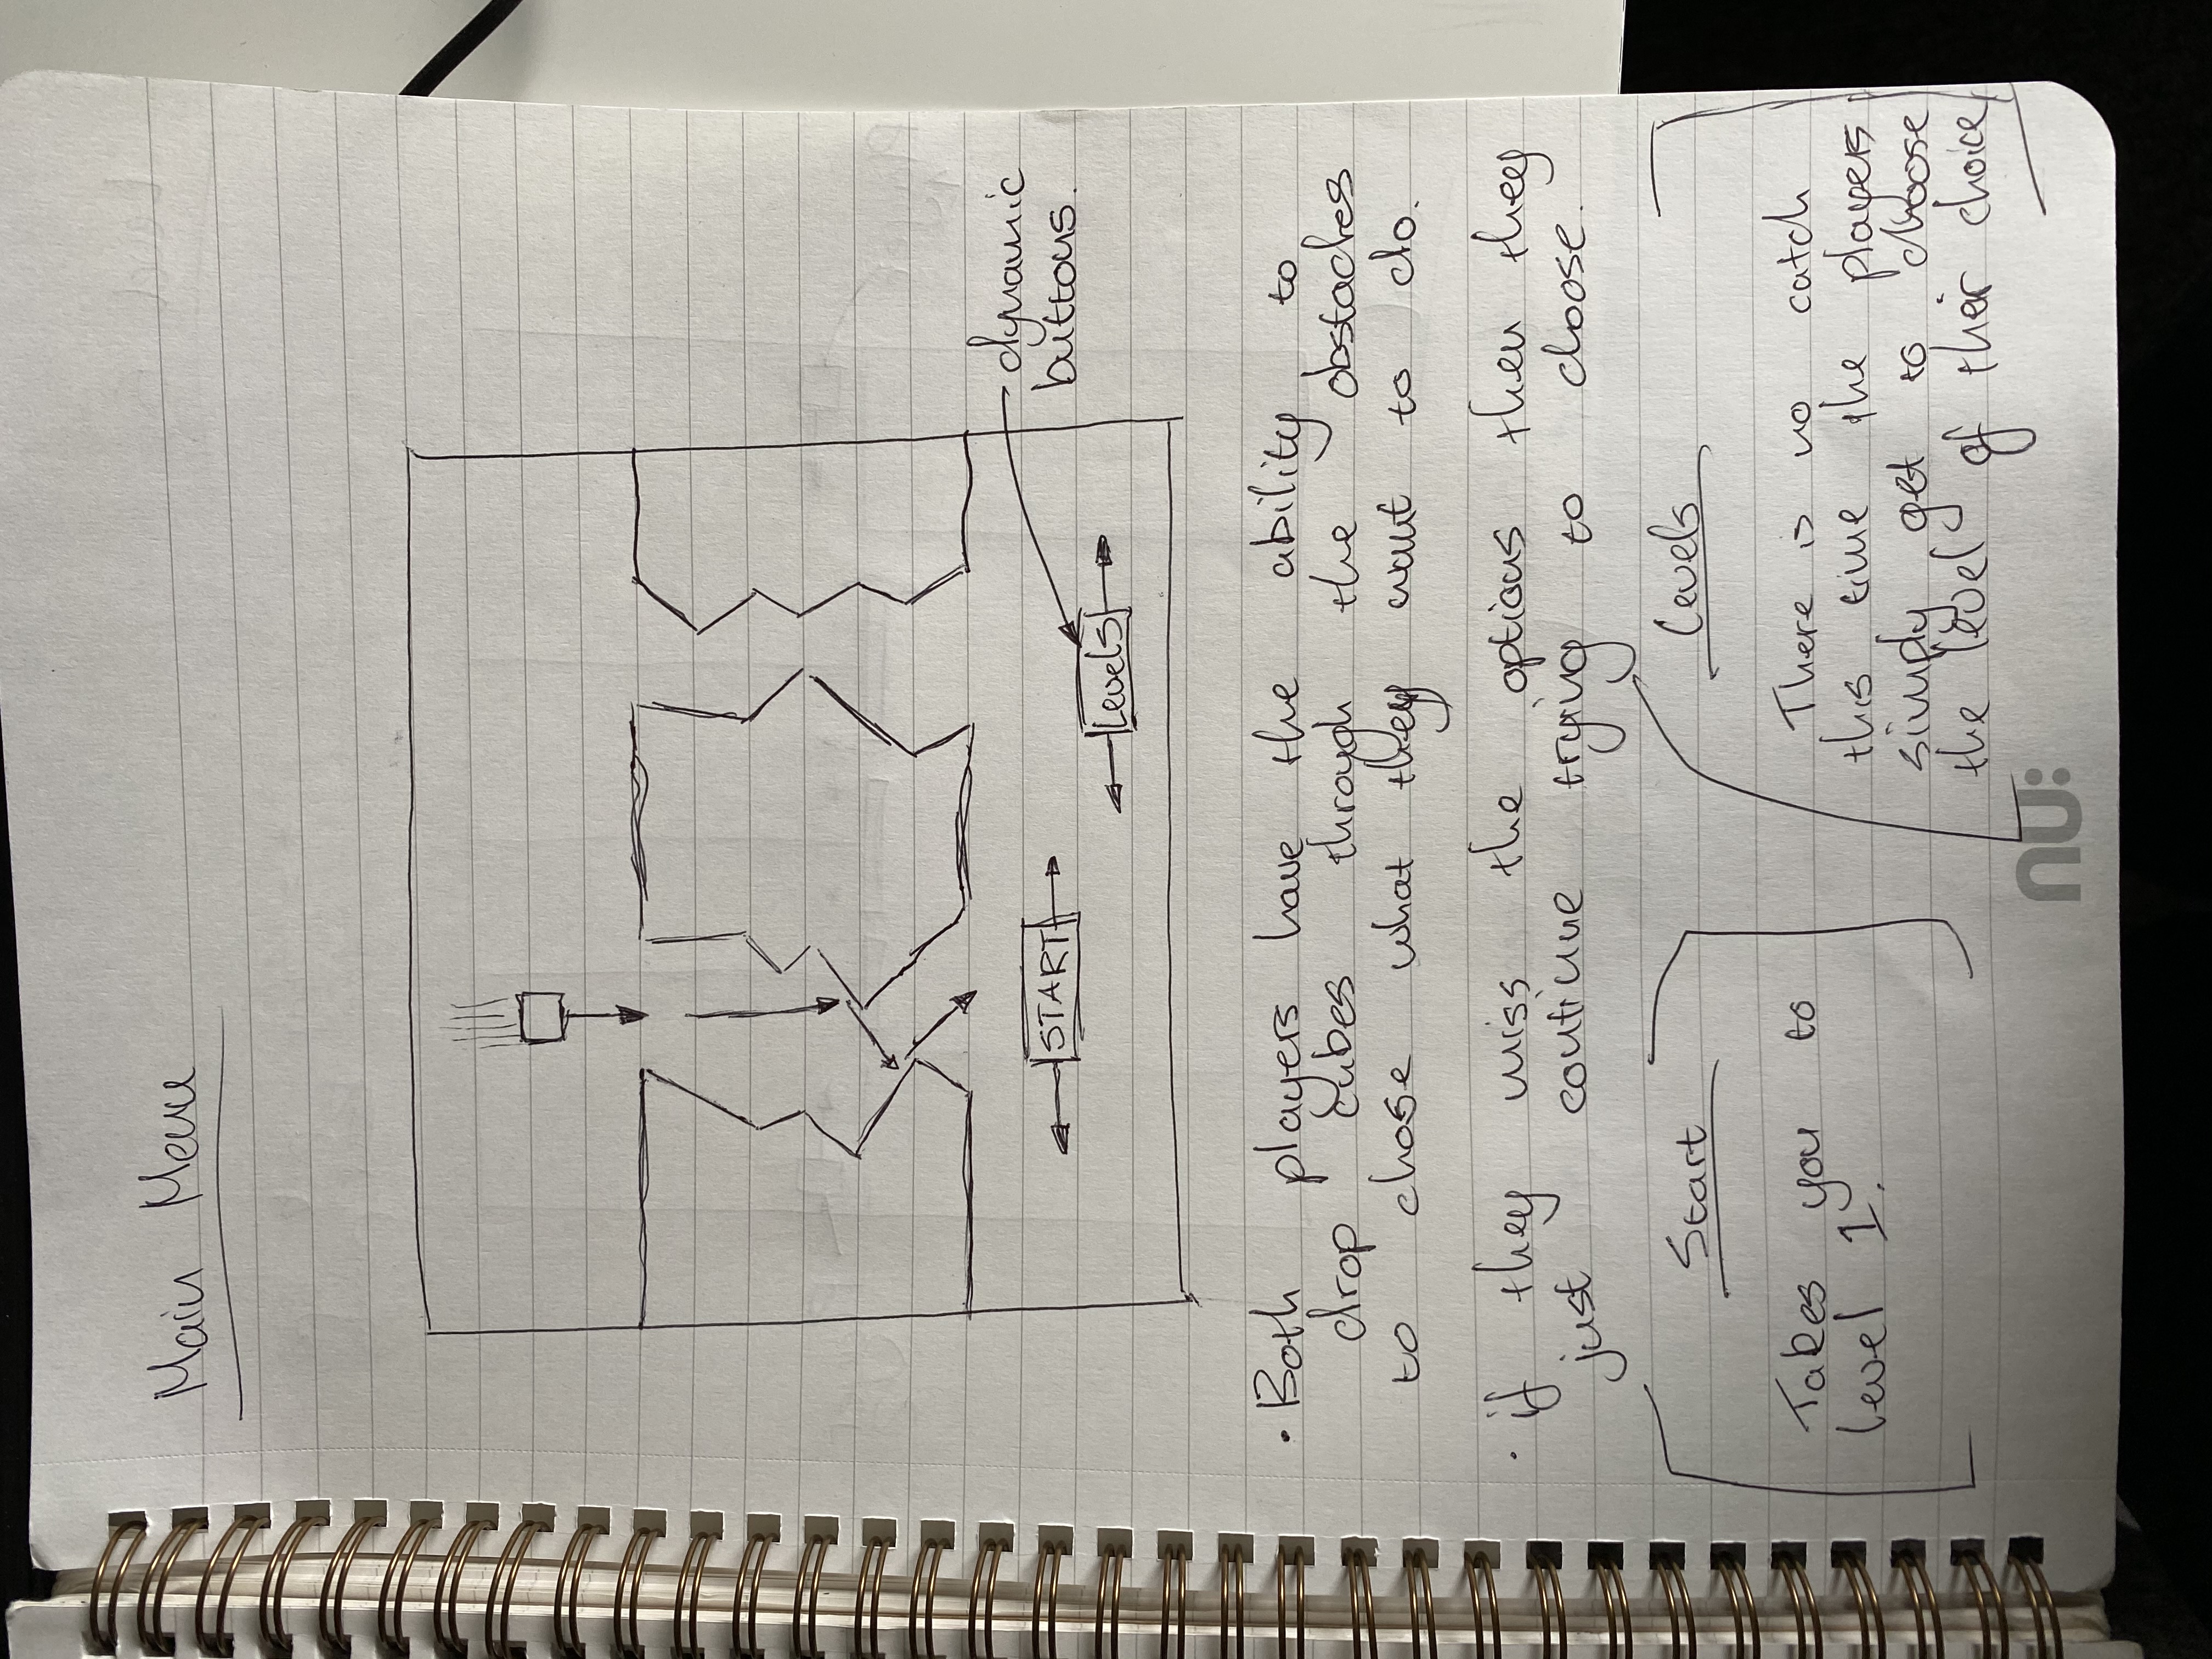 Main Menu
START
Levels
dynamic
buttons.
• Both players have the ability to
drop cubes through the obstacles
to chose what they want to do.
• if they miss the options then they
just continue trying to choose.
Start
Takes you to
level 1.
Levels
There is no catch
this time the players
simply get to choose
the level of their choice
nu: